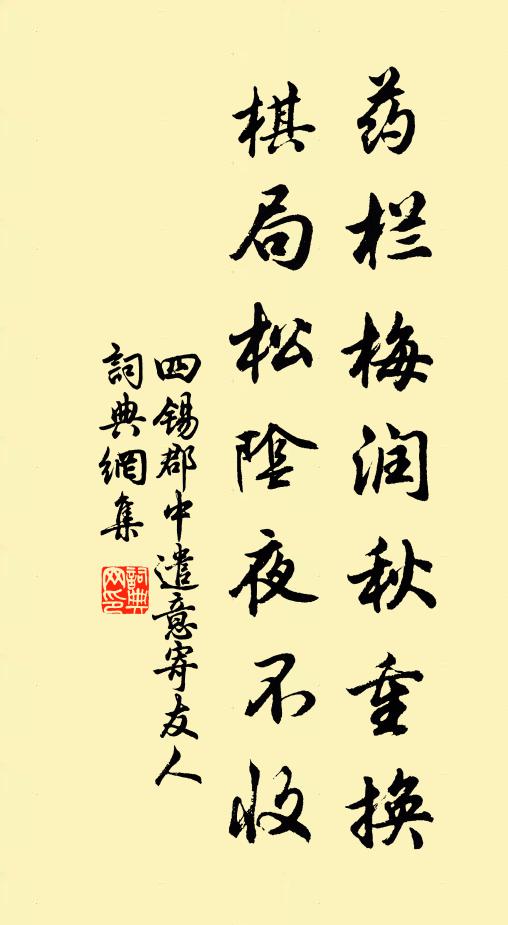 药栏梅润秋重换
棋局松陰夜不收
四锡郡中遣意寄友人
詞典網集
詞典网印